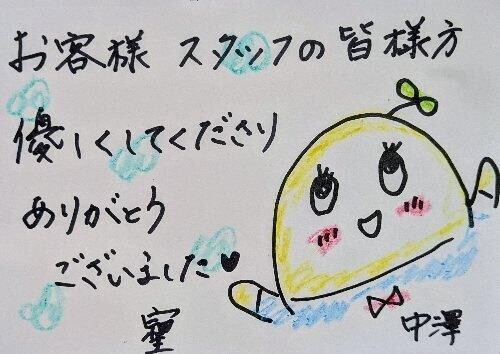 お客様 スタッフの皆様方
優しくしてくださり
ありがとう
ございました♥
中澤